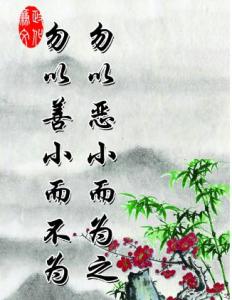 勿以恶小而为之
勿以善小而不为